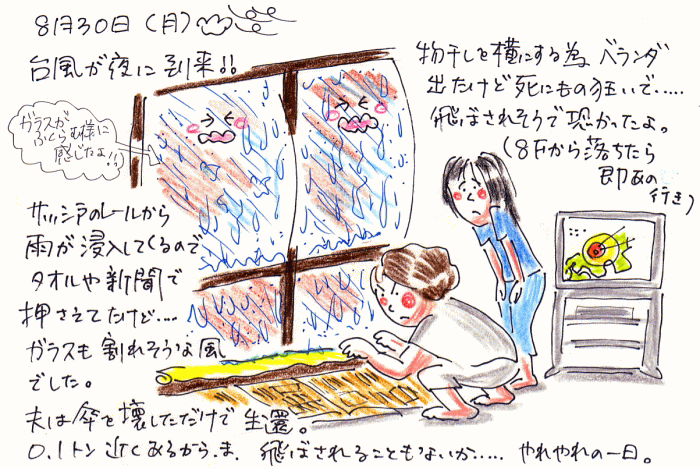 8月30日(月)
台風が夜に到来!!
ガラスが
ふくらむ様に
感じたよ!!
物干しを横にする為 ベランダ
出たけど死にもの狂いで‥‥‥
飛ばされそうで恐かったよ。
(8Fから落ちたら
即あの
行き)
サッシアのレールから
雨が浸入してくるので
タオルや新聞で
押さえてたけど‥‥
ガラスも割れそうな風
でした。
夫は傘を壊しただけで生還。
0.1トン近くあるから、ま、飛ばされることもないか‥‥‥ やれやれの一日。